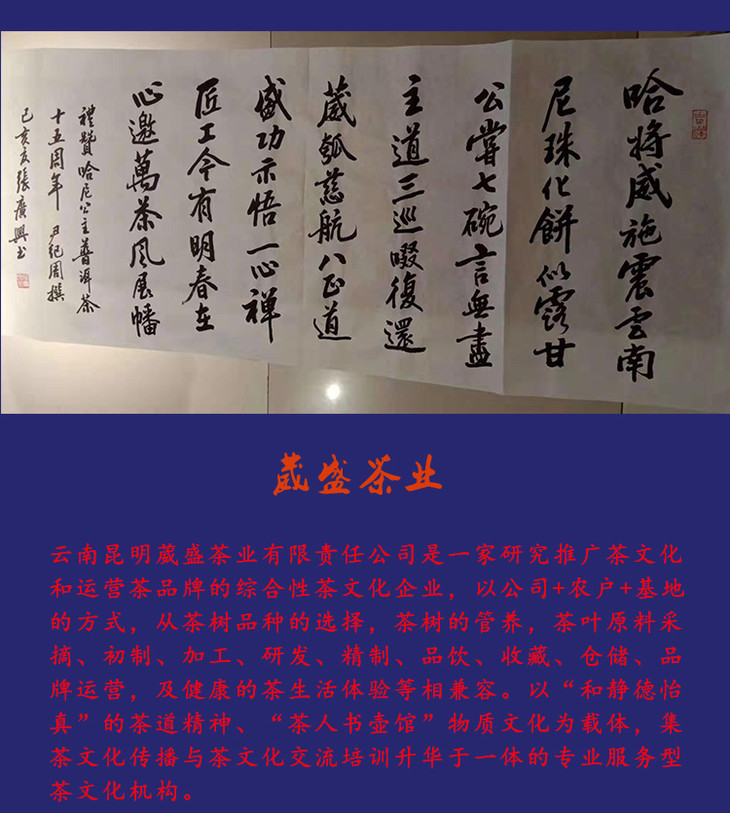 哈將威施震云南
尼珠化餅似露甘
公嘗七碗言無盡
主道三巡啜復還
葳瓠慈航八正道
盛功示悟一心禅
匠工今有明春在
心邀萬茶风展幡
禮贊哈尼公主普洱茶
十五周年 尹纪周撰
己亥夏張廣興书
葳盛茶业
云南昆明葳盛茶业有限责任公司是一家研究推广茶文化
和运营茶品牌的综合性茶文化企业，以公司+农户+基地
的方式，从茶树品种的选择，茶树的管养，茶叶原料采
摘、初制、加工、研发、精制、品饮、收藏、仓储、品
牌运营，及健康的茶生活体验等相兼容。以“和静德怡
真”的茶道精神、“茶人书壶馆”物质文化为载体，集
茶文化传播与茶文化交流培训升华于一体的专业服务型
茶文化机构。